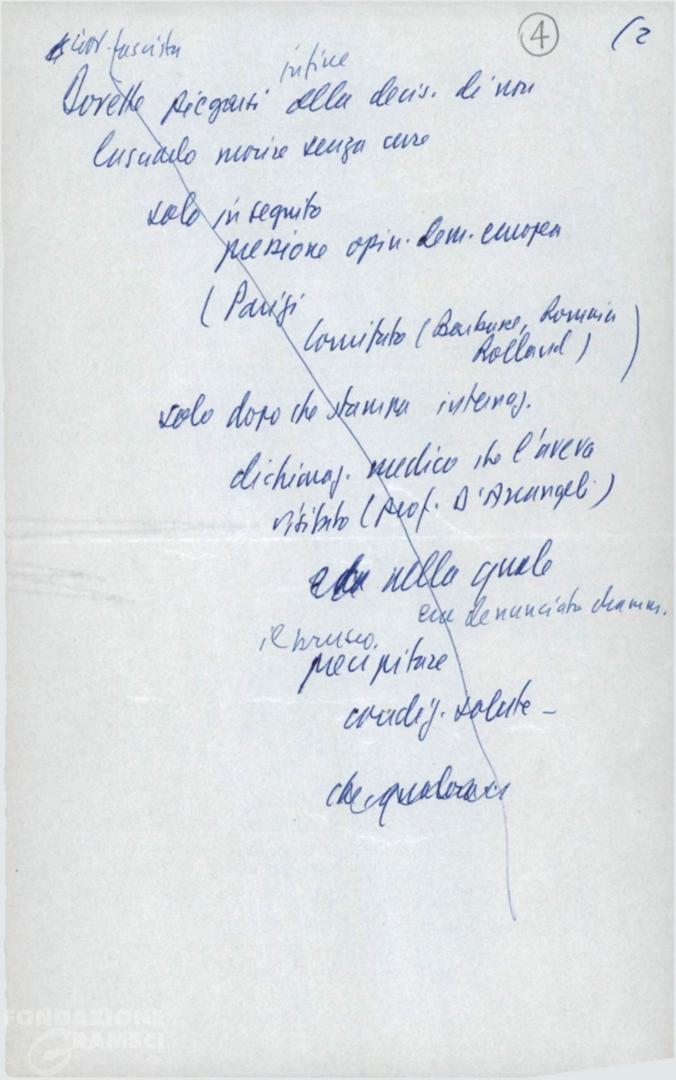 4 (2
Gior. fascista
infine
Dovette piegarsi alla decis. di non
lasciarlo morire senza cure
solo in seguito
pressione opin. dem. europea
(Parigi
Comitato (Barbusse, Romain
Rolland) )
solo dopo che stampa internaz.
dichiaraz. medico che l'aveva
visitato (Prof. D'Arcangeli)
nella quale
era denunciato dramm.
il brusco.
precipitare
condiz. salute -
che
FONDAZIONE
GRAMSCI